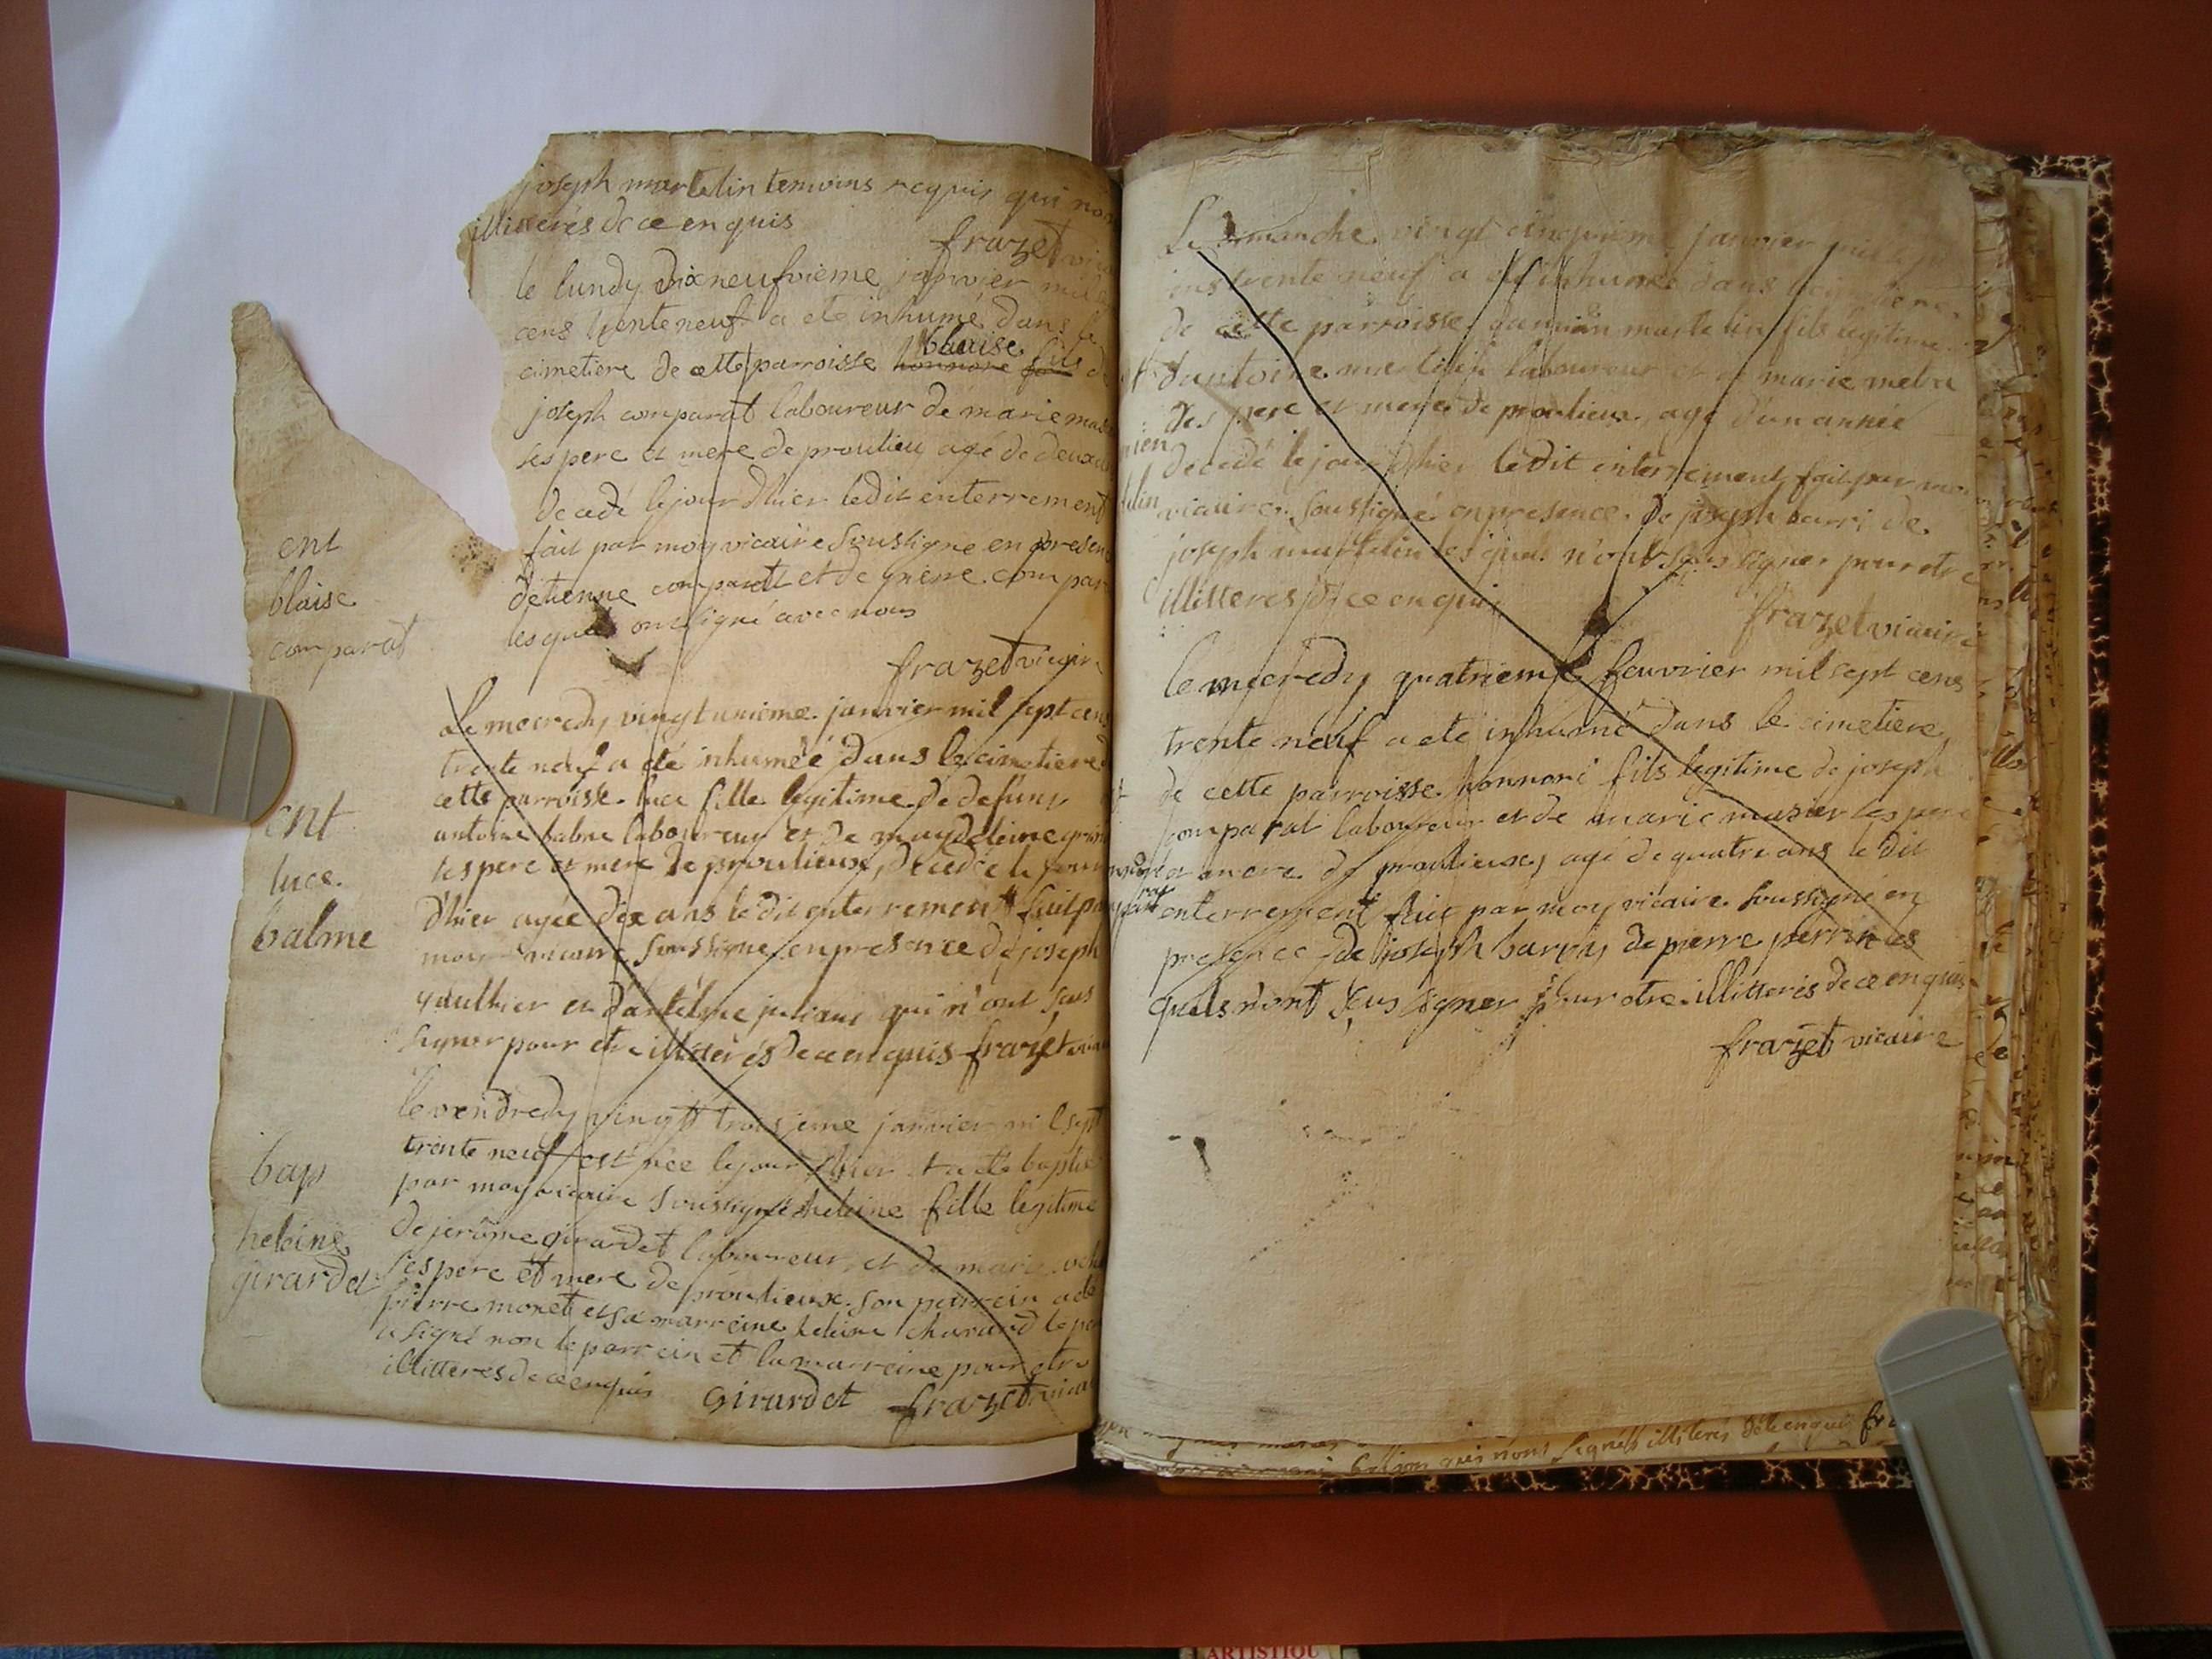 joseph martelin temoins requis qui
illitterés de ce enquis
frazet
le lundy dixneufvieme janvier mil
cens trente neuf a ete inhumé dans le
cimetiere de cette parroisse honnoré fils blaise fils de
joseph comparat laboureur de marie
ses pere et mere de proulieu agé de deux
decedé le jour dhier ledit enterrement
fait par moy vicaire soussigne en presen
detienne comparatt et de pierre compar
lesquels ont signé avec nous
frazet vicaire
ent
blaise
comparat
Le mecredy vingt unieme janvier mil sept cens
trente neuf a eté inhumeé dans le cimetiere
cette parroisse luce fille legitime de defunt
antoine balme laboureur et de magdeleine
ses pere et mere de proulieux, decedée le jour
dhier agée dix ans le dit enterrement fait par
moy vicaire soussigne en presence de joseph
gaulhier et dantelme juliani qui n'ont sçus
signer pour etre illitterés de ce enquis frazet
ent
luce
balme
le vendredy vingtt troisieme janvier mil sept
trente neuf est née le jour dhier et a eté baptise
par moy vicaire soussigné heleine fille legitime
de jerôme girardet laboureur et de marie
ses pere et mere de proulieux son parrein a eté
pierre monet et sa marreine heleine charard le per
a signé non le parrein et la marreine pour etre
illitteres de ce enquis Girardet frazet vicai
bap
heleine
girardet
Le dimanche vingt cinquieme janvier mil sept
cens trente neuf a eté inhumé dans le cimetiere
de cette parroisse damien martelin fils legitime
dantoine martelin laboureur et de marie
ses pere et mere de proulieux agé d'un année
decedé le jour dhier le dit enterrement fait par moy
vicaire soussigné en presence de joseph barri de
joseph martelin lesquels n'ont sçus signer pour etre
illitteres de ce enquis
frazet vicaire
le mecredy quatrieme feuvrier mil sept cens
trente neuf a eté inhumé dans le cimetiere
de cette parroisse honnoré fils legitime de joseph
comparat laboureur et de marie masier ses pere
et mere de proulieux agé de quatre ans le dit
enterrement fait par moy vicaire soussigné en
presence de joseph barri de pierre perrin les
quels n'ont sçus signer pour etre illitterés de ce enquis
frazet vicaire
qui n'ont signés illiterés de ce enquis
ARTISTIQU